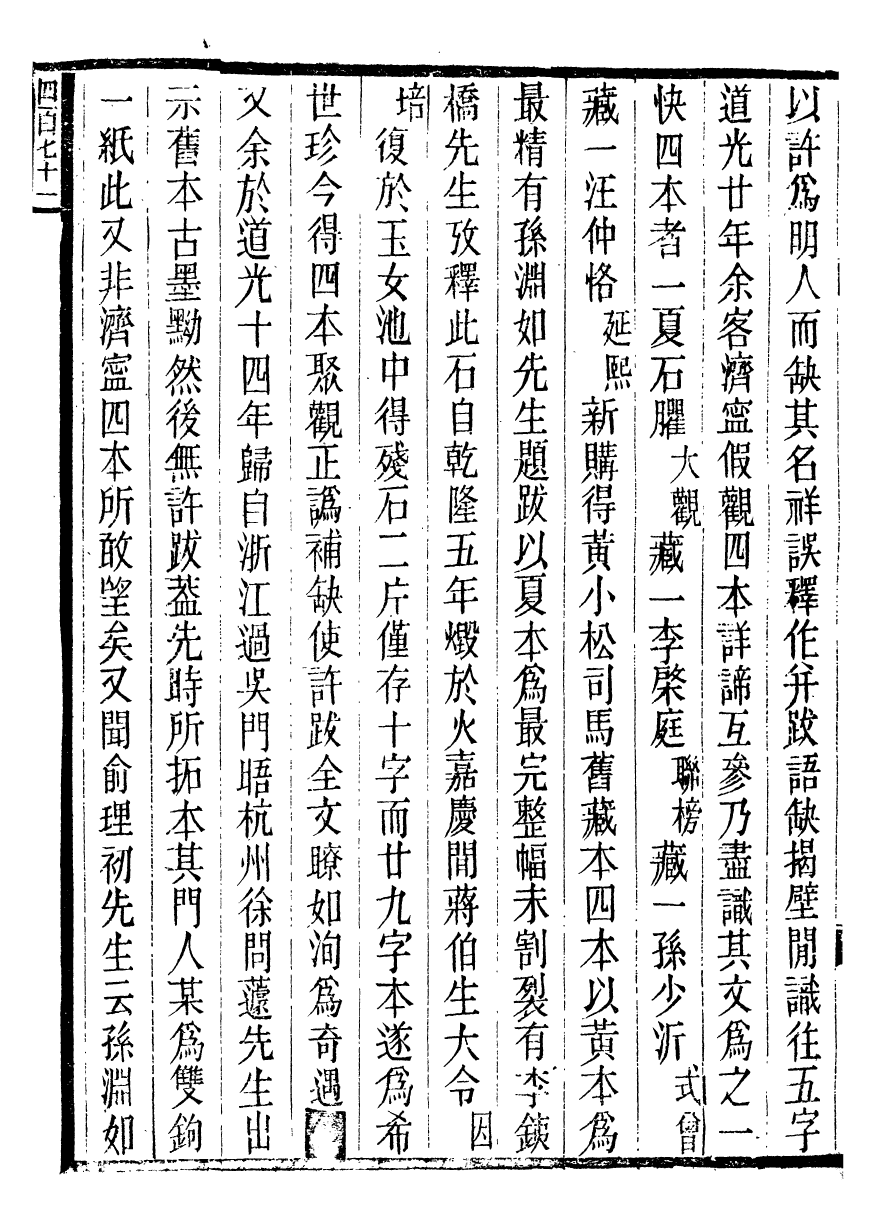 以許爲明人而缺其名祥誤釋作并跋語缺揭壁閒識往五字
道光廿年余客濟寍假觀四本詳諦互參乃盡識其文爲之一
快四本者一夏石臞大觀藏一李棨庭聯榜藏一孫少沂式曾
藏一汪仲恪延熙新購得黃小松司馬舊藏本四本以黃本爲
最精有孫淵如先生題跋以夏本爲最完整幅未割裂有李鐵
橋先生攷釋此石自乾隆五年燬於火嘉慶閒蔣伯生大令因
培復於玉女池中得殘石二片僅存十字而廿九字本遂爲希
世珍今得四本聚觀正譌補缺使許跋全文瞭如洵爲奇遇
又余於道光十四年歸自浙江過吳門晤杭州徐問蘧先生出
示舊本古墨黝然後無許跋葢先時所拓本其門人某爲雙鉤
一紙此又非濟寍四本所敢望矣又聞俞理初先生云孫淵如
四百七十一